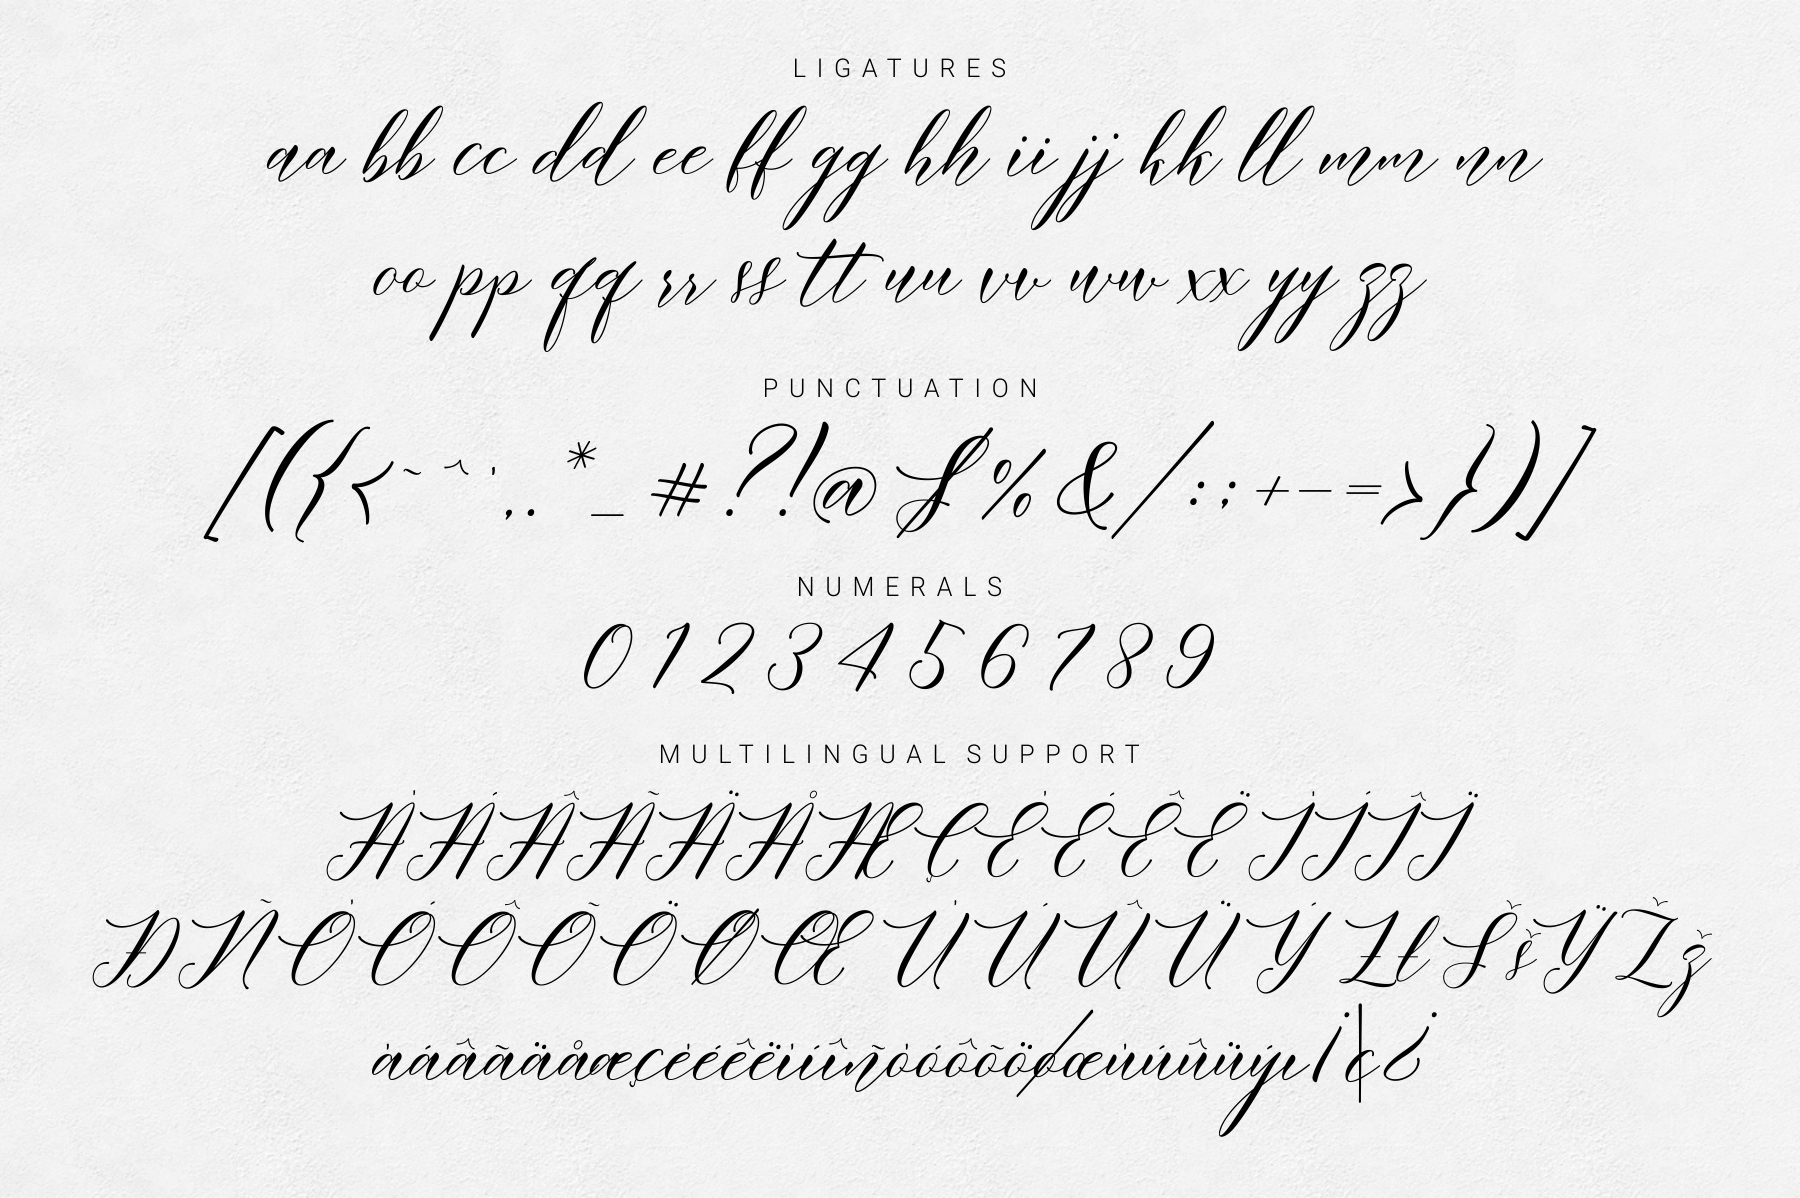 LIGATURES
aa bb cc dd ee ff gg hh ii jj kk ll mm nn
oo pp qq rr ss tt uu vv ww xx yy zz
PUNCTUATION
[({<~^',.*_#?!@$%&/:;+-=>})]
NUMERALS
0 1 2 3 4 5 6 7 8 9
MULTILINGUAL SUPPORT
ÀÁÂÃÄÅÆÇÈÉÊËÌÍÎÏ
ÐÑÒÓÔÕÖØŒÙÚÛÜÝŁłŠšŸŽž
àáâãäåæçèéêëìíîñòóôõöøœùúûüýı¡¢¿